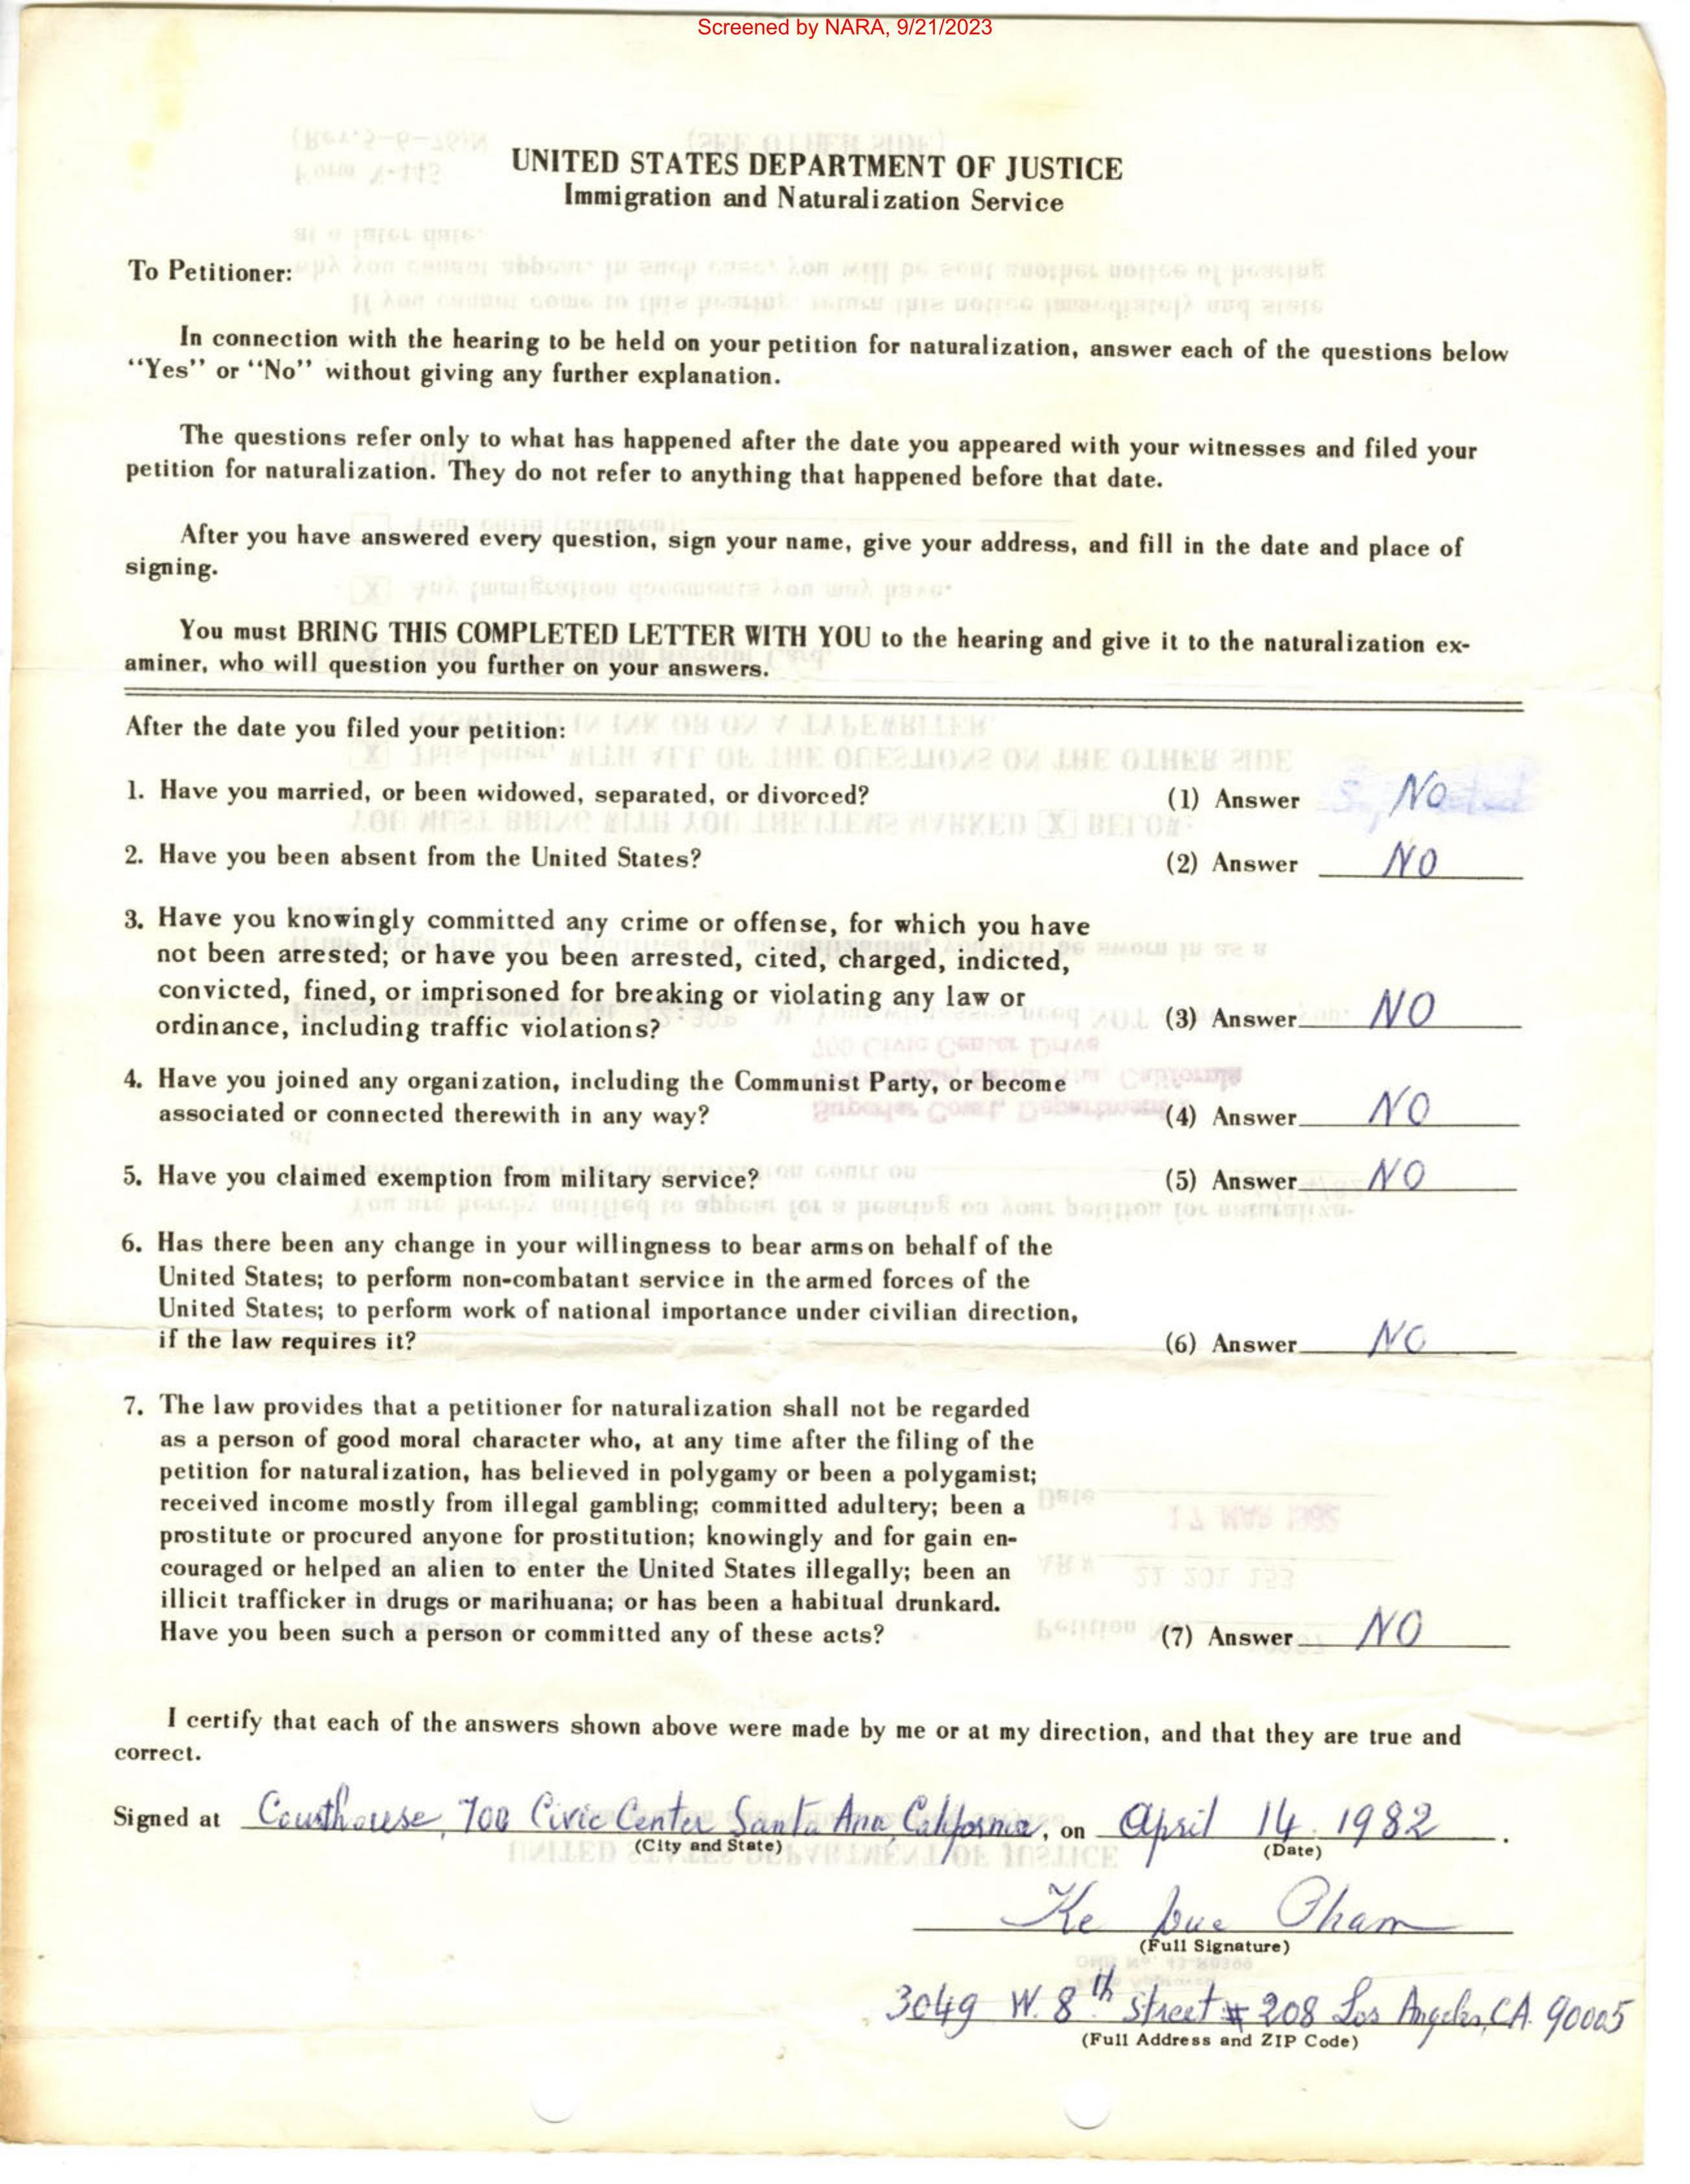 Screened by NARA, 9/21/2023
UNITED STATES DEPARTMENT OF JUSTICE
Immigration and Naturalization Service
To Petitioner:
In connection with the hearing to be held on your petition for naturalization, answer each of the questions below
“Yes” or “No” without giving any further explanation.
The questions refer only to what has happened after the date you appeared with your witnesses and filed your
petition for naturalization. They do not refer to anything that happened before that date.
After you have answered every question, sign your name, give your address, and fill in the date and place of
signing.
You must BRING THIS COMPLETED LETTER WITH YOU to the hearing and give it to the naturalization ex-
aminer, who will question you further on your answers.
After the date you filed your petition:
1. Have you married, or been widowed, separated, or divorced? (1) Answer No
2. Have you been absent from the United States? (2) Answer NO
3. Have you knowingly committed any crime or offense, for which you have
not been arrested; or have you been arrested, cited, charged, indicted,
convicted, fined, or imprisoned for breaking or violating any law or
ordinance, including traffic violations? (3) Answer NO
4. Have you joined any organization, including the Communist Party, or become
associated or connected therewith in any way? (4) Answer NO
5. Have you claimed exemption from military service? (5) Answer NO
6. Has there been any change in your willingness to bear arms on behalf of the
United States; to perform non-combatant service in the armed forces of the
United States; to perform work of national importance under civilian direction,
if the law requires it? (6) Answer NO
7. The law provides that a petitioner for naturalization shall not be regarded
as a person of good moral character who, at any time after the filing of the
petition for naturalization, has believed in polygamy or been a polygamist;
received income mostly from illegal gambling; committed adultery; been a
prostitute or procured anyone for prostitution; knowingly and for gain en-
couraged or helped an alien to enter the United States illegally; been an
illicit trafficker in drugs or marihuana; or has been a habitual drunkard.
Have you been such a person or committed any of these acts? (7) Answer NO
I certify that each of the answers shown above were made by me or at my direction, and that they are true and
correct.
Signed at Courthouse, 700 Civic Center Santa Ana, California, on April 14. 1982.
(City and State) (Date)
Ke Duc Pham
(Full Signature)
3049 W. 8th Street # 208 Los Angeles, CA. 90005
(Full Address and ZIP Code)